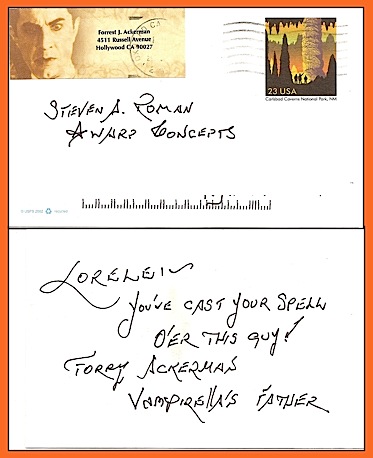 Forrest J. Ackerman
4511 Russell Avenue
Hollywood CA 90027
23 USA
Carlsbad Caverns National Park, NM
STEVEN A. ROMAN
AWARP CONCEPTS
© USPS 2002 recycled
LORELEI~
YOU'VE CAST YOUR SPELL
O'ER THIS GUY!
FORRY ACKERMAN
VAMPIRELLA'S FATHER